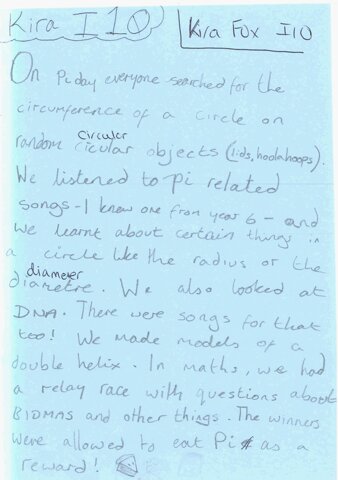 Kira I10
Kira Fox I10
On Pi day everyone searched for the
circumference of a circle on
circular
random cicular objects (lids, hoolahoops).
We listened to pi related
songs - I knew one from year 6 - and
we learnt about certain things in
a circle like the radius or the
diameter
diametre. We also looked at
DNA. There were songs for that
too! We made models of a
double helix. In maths, we had
a relay race with questions about
BIDMAS and other things. The winners
were allowed to eat Pi as a
reward!